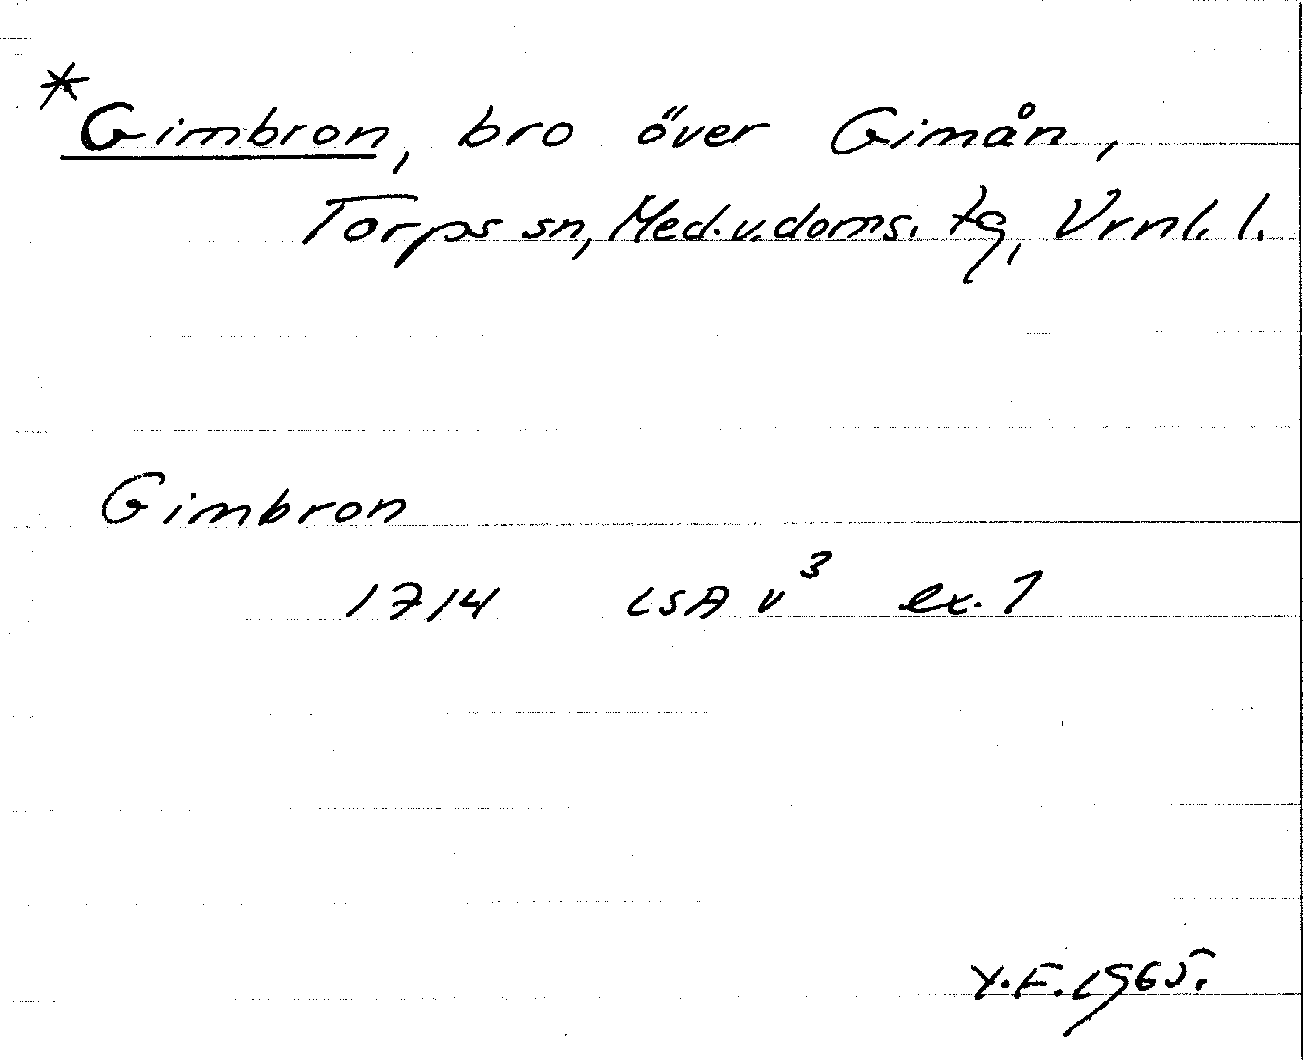 *Gimbron, bro över Gimån,
Torps sn, Med.v.doms. tg, Vrnl. l.
Gimbron
1714 LSA v³ ex. 1
Y.F. 1965.